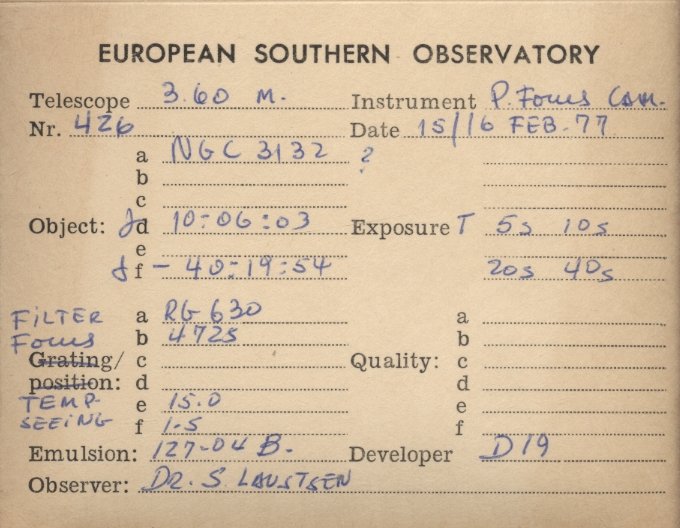 EUROPEAN SOUTHERN OBSERVATORY
Telescope 3.60 M. Instrument P. Focus Cam.
Nr. 426 Date 15/16 FEB. 77
a NGC 3132 ?
b
c
Object: d 10:06:03 Exposure T 5s 10s
e
f - 40:19:54 20s 40s
FILTER a RG 630 a
Focus b 4725 b
Grating/ c Quality: c
position: d d
TEMP. e 15.0 e
SEEING f 1.5 f
Emulsion: 127-04 B. Developer D19
Observer: DR. S. LAUSTSEN